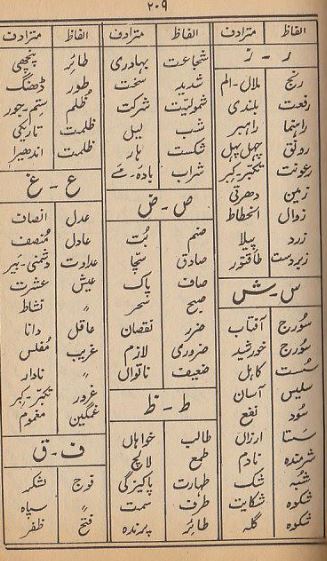 ۲۰۹
الفاظ مترادف
ر - ز
رنج ملال-الم
رفعت بلندی
راہنما راہبر
رونق چہل پہل
رعونت تکبّر-کبر
زمین دھرتی
زوال انحطاط
زرد پیلا
زبردست طاقتور
س-ش
سُورج آفتاب
سُورج خورشید
سُست کاہل
سلیس آسان
سُود نفع
سستا ارزاں
شرمندہ نادم
شُبہ شک
شکوہ شکایت
شکوہ گلہ
الفاظ مترادف
شجاعت بہادری
شدید سخت
شمولیّت شرکت
شب لیل
شکست ہار
شراب بادہ-مے
ص-ض
صنم بُت
صادق سچّا
صاف پاک
صبح سحر
ضرر نقصان
ضروری لازم
ضعیف ناتواں
ط-ظ
طالب خواہاں
طمع لالچ
طہارت پاکیزگی
طرف سمت
طائر پرندہ
الفاظ مترادف
طائر پنچھی
طور ڈھنگ
ظُلم ستم-جور
ظلمت تاریکی
ظلمت اندھیرا
ع-غ
عدل انصاف
عادل مُنصف
عداوت دشمنی-بَیر
عیش عشرت
〃 نشاط
عاقل دانا
غریب مُفلس
〃 نادار
غرور تکبّر-کبر
غمگین مغموم
ف-ق
فوج لشکر
〃 سپاہ
فتح ظفر